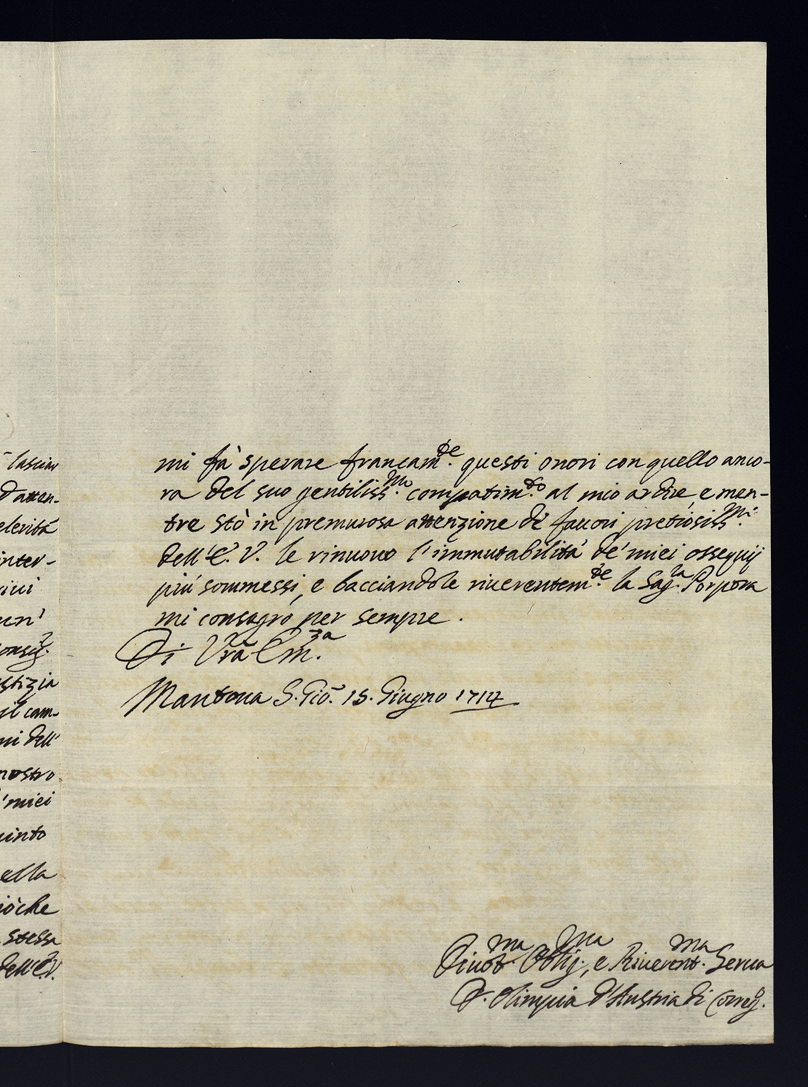 lascin
d'atten-
elerità
inter-
rivi
un'
consig.
stizia
il cam-
ni dell'
nostro
'miei
uinto
ella
iòche
stessa
dell'E.V.
mi fà sperare francam.de questi onori con quello anco-
ra del suo gentiliss.mo compatim.to al mio ardire e men-
tre stò in premurosa attenzione de' favori pretiosiss.mi
dell'E. V. le rinuovo l'immutabilità de' miei ossequij
più sommessi, e bacciandole riverentem.de la Sag.ta Porpora
mi consagro per sempre.
Di Vrã Em.za
Mantova S. Gio. 15. Giugno 1714
Divot.ma Oblig.ma, e Riverent.ma Serva
D. Olimpia d'Austria di Correg.